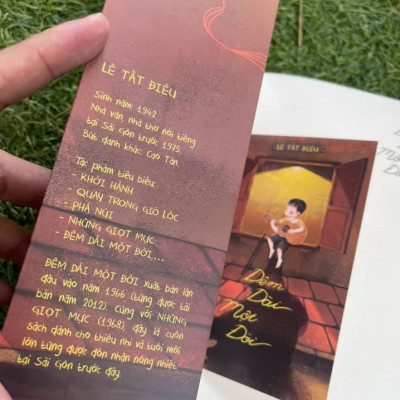 LÊ TẤT ĐIỀU
Sinh năm: 1942
Nhà văn, nhà thơ nổi tiếng
tại Sài Gòn trước 1975.
Bút danh khác: Cao Tần.
Tác phẩm tiêu biểu:
- KHỞI HÀNH
- QUAY TRONG GIÓ LỐC
- PHÁ NÚI
- NHỮNG GIỌT MỰC
- ĐÊM DÀI MỘT ĐỜI,...
ĐÊM DÀI MỘT ĐỜI xuất bản lần
đầu vào năm 1966 (từng được tái
bản năm 2012). Cùng với NHỮNG
GIỌT MỰC (1968), đây là cuốn
sách dành cho thiếu nhi và tuổi mới
lớn từng được đón nhận nồng nhiệt
tại Sài Gòn trước đây.
LÊ TẤT ĐIỀU
Đêm
Dài
Một
Đời